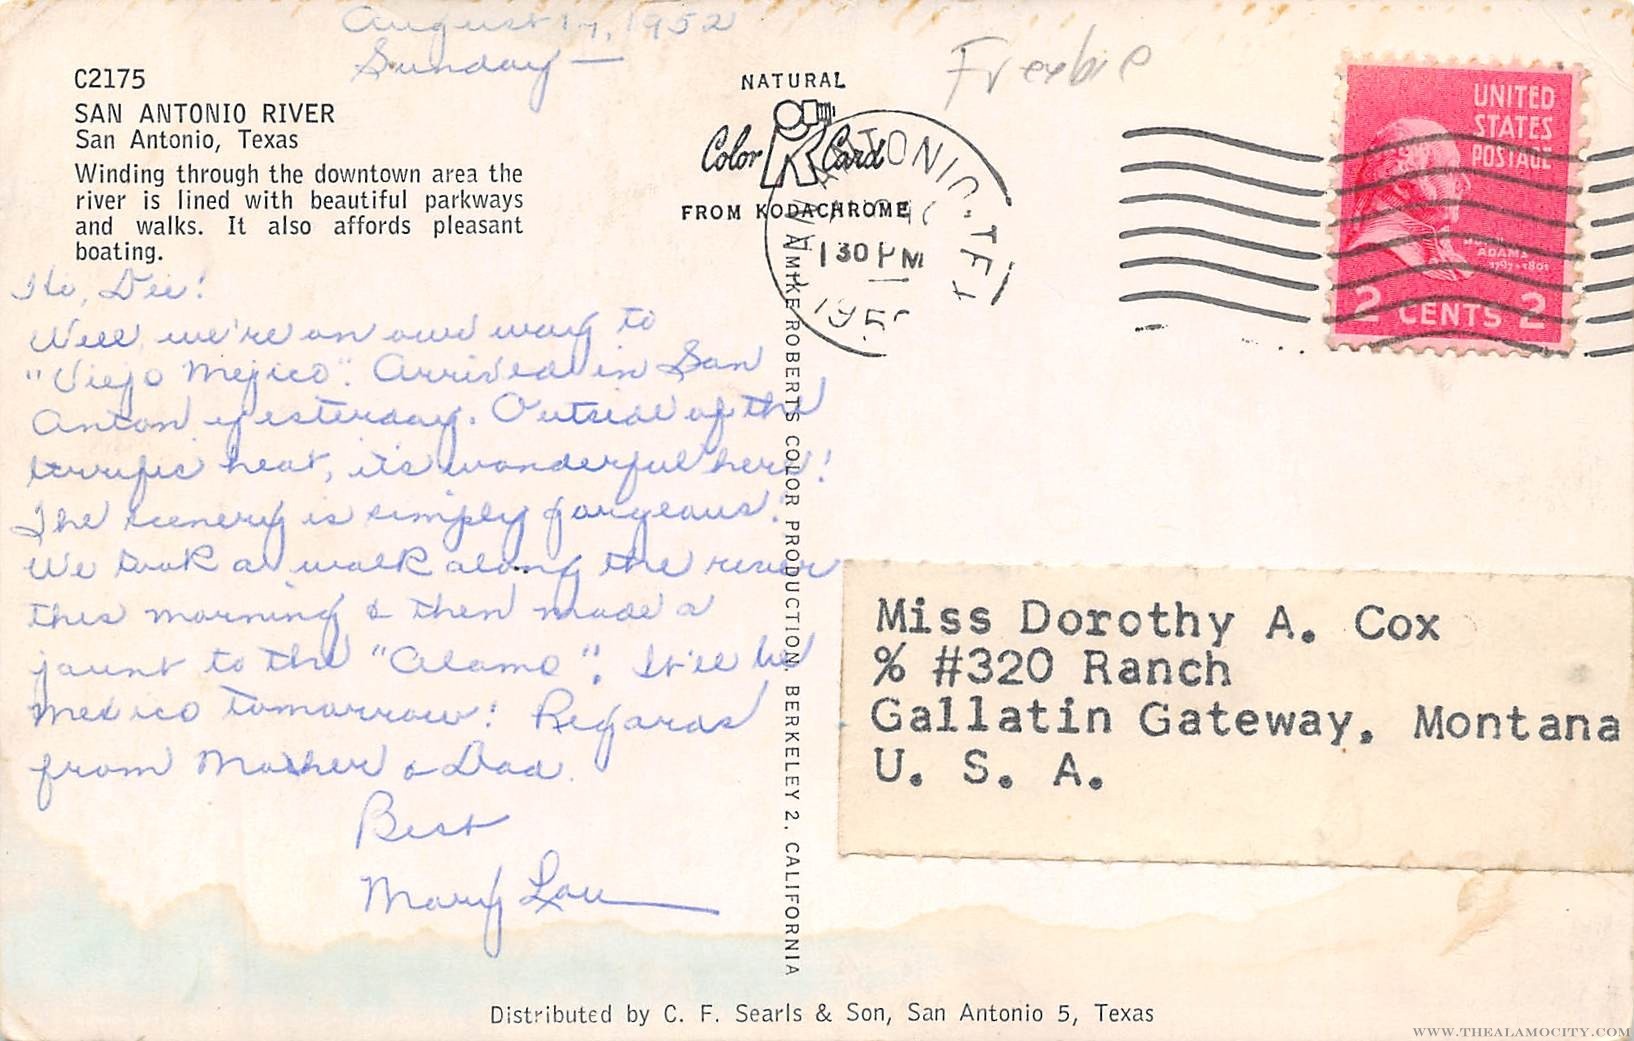 August 17, 1952
Sunday —
Freebie
C2175
SAN ANTONIO RIVER
San Antonio, Texas
Winding through the downtown area the
river is lined with beautiful parkways
and walks. It also affords pleasant
boating.
NATURAL
Color Card
FROM KODACHROME
130 PM
UNITED
STATES
POSTAGE
ADAMS
1797-1801
2 CENTS 2
Hi, Dee!
Well, we're on our way to
"Viejo Mejico". Arrived in San
Anton yesterday. Outside of the
terrific heat, it's wonderful here!
The scenery is simply gorgeous!
We took a walk along the river
this morning & then made a
jaunt to the "Alamo". It'll be
Mexico tomorrow! Regards
from Mother & Dad.
Best
Mary Lou
MIKE ROBERTS COLOR PRODUCTION, BERKELEY 2, CALIFORNIA
Miss Dorothy A. Cox
% #320 Ranch
Gallatin Gateway, Montana
U. S. A.
Distributed by C. F. Searls & Son, San Antonio 5, Texas
WWW.THEALAMOCITY.COM